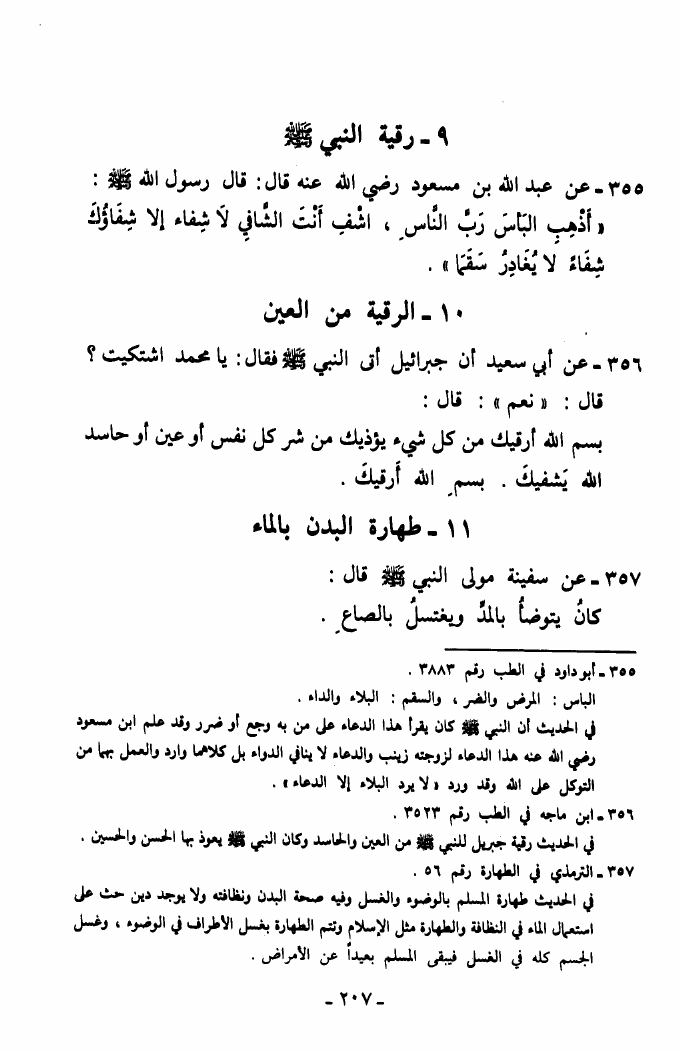 ٩ ـ رقية النبي ﷺ
٣٥٥ ـ عن عبد الله بن مسعود رضي الله عنه قال: قال رسول الله ﷺ :
« أَذْهِبِ البَأسَ رَبَّ النَّاسِ ، اشْفِ أَنْتَ الشَّافِي لَا شِفاء إلا شِفَاؤُكَ
شِفَاءً لا يُغَادِرُ سَقَمَا » .
١٠ ـ الرقية من العين
٣٥٦ ـ عن أبي سعيد أن جبرائيل أتى النبي ﷺ فقال: يا محمد اشتكيت ؟
قال : « نعم » : قال :
بسم الله أرقيك من كل شيء يؤذيك من شر كل نفس أو عين أو حاسد
الله يَشفيكَ . بسمِ الله أَرقيكَ .
١١ ـ طهارة البدن بالماء
٣٥٧ ـ عن سفينة مولى النبي ﷺ قال :
كانُ يتوضأُ بالمدِّ ويغتسلُ بالصاعِ .
٣٥٥ ـ أبو داود في الطب رقم ٣٨٨٣ .
الباس : المرض والضر ، والسقم : البلاء والداء .
في الحديث أن النبي ﷺ كان يقرأ هذا الدعاء على من به وجع أو ضرر وقد علم ابن مسعود
رضي الله عنه هذا الدعاء لزوجته زينب والدعاء لا ينافي الدواء بل كلاهما وارد والعمل بهما من
التوكل على الله وقد ورد « لا يرد البلاء إلا الدعاء » .
٣٥٦ ـ ابن ماجه في الطب رقم ٣٥٢٣ .
في الحديث رقية جبريل للنبي ﷺ من العين والحاسد وكان النبي ﷺ يعوذ بها الحسن والحسين .
٣٥٧ ـ الترمذي في الطهارة رقم ٥٦ .
في الحديث طهارة المسلم بالوضوء والغسل وفيه صحة البدن ونظافته ولا يوجد دين حث على
استعمال الماء في النظافة والطهارة مثل الإسلام وتتم الطهارة بغسل الأطراف في الوضوء ، وغسل
الجسم كله في الغسل فيبقى المسلم بعيداً عن الأمراض .
ـ ٢٠٧ ـ